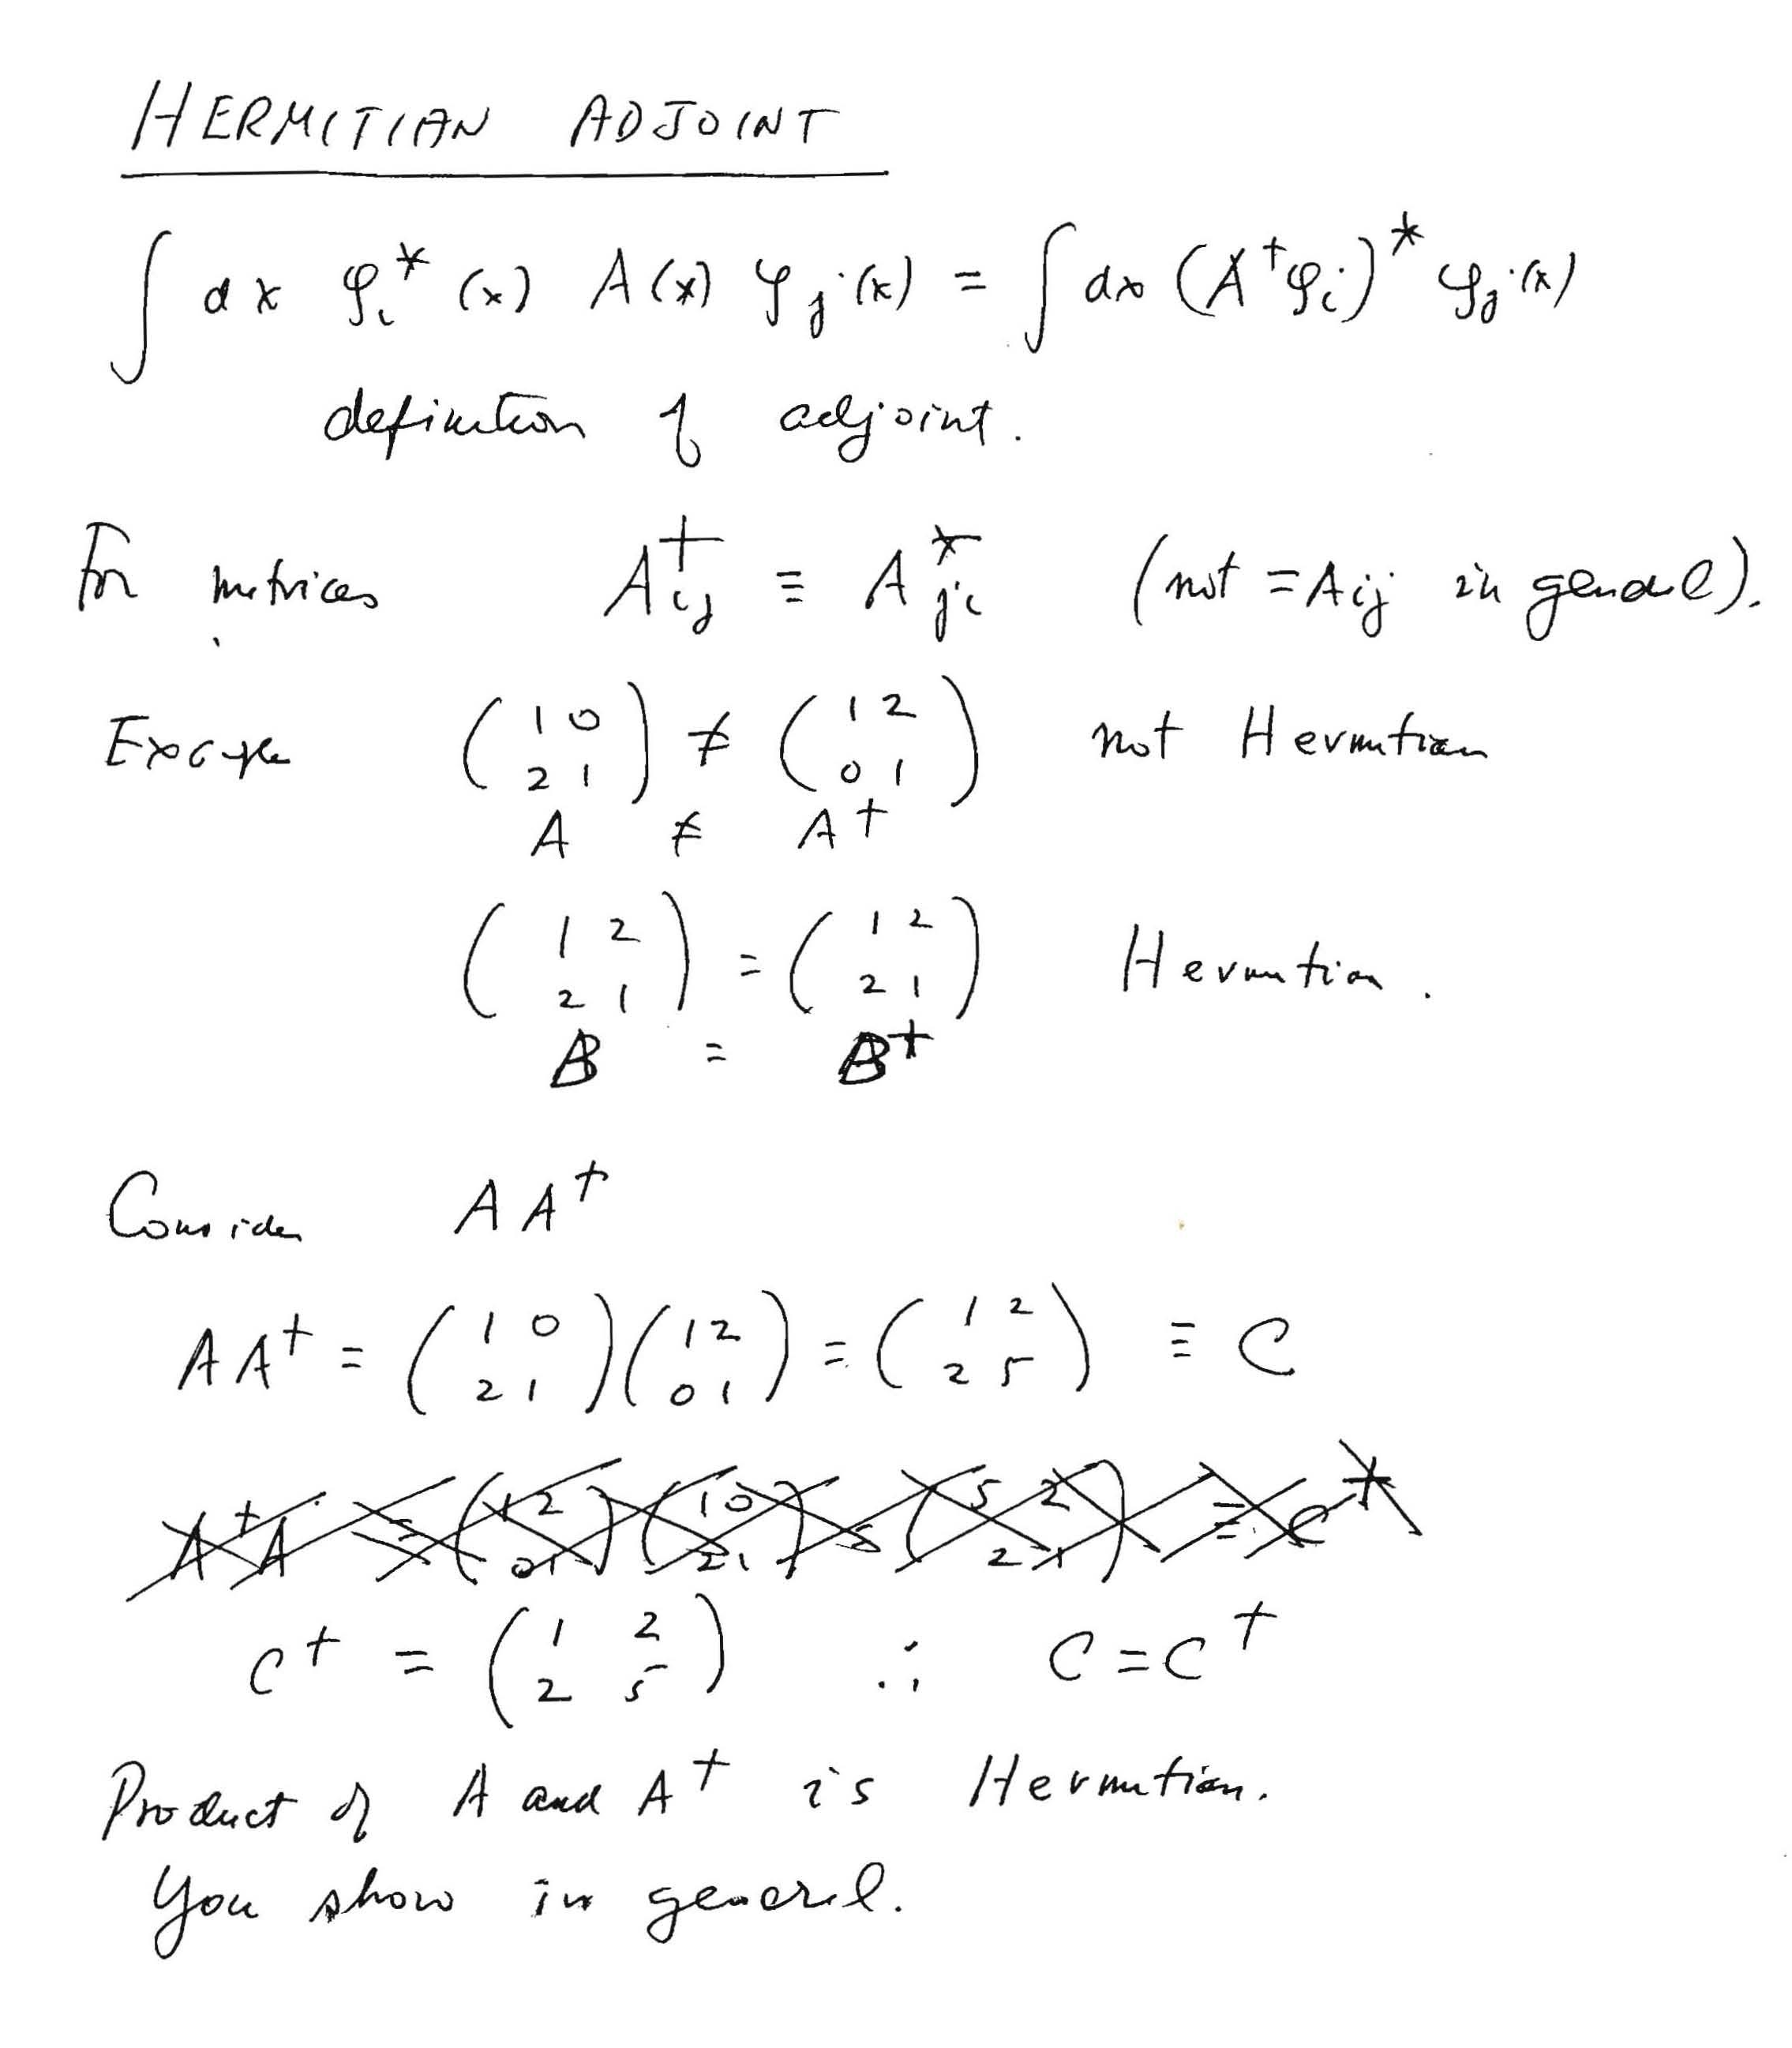 HERMITIAN ADJOINT
∫ dx φᵢ* (x) A(x) φⱼ(x) = ∫ dx (A⁺φᵢ)* φⱼ(x)
definition of adjoint.
For matrices A⁺ᵢⱼ ≡ A*ⱼᵢ (not = Aᵢⱼ in general).
Example (1 0; 2 1) ≠ (1 2; 0 1) not Hermitian
A ≠ A⁺
(1 2; 2 1) = (1 2; 2 1) Hermitian.
B = B⁺
Consider A A⁺
A A⁺ = (1 0; 2 1)(1 2; 0 1) = (1 2; 2 5) ≡ C
A⁺A = (1 2; 0 1)(1 0; 2 1) = (5 2; 2 1) ≡ C*
C⁺ = (1 2; 2 5) ∴ C = C⁺
Product of A and A⁺ is Hermitian.
You show in general.